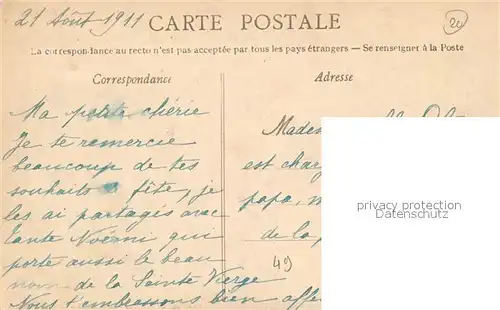 21 Août 1911
CARTE POSTALE
20
La correspondance au recto n'est pas acceptée par tous les pays étrangers — Se renseigner à la Poste
Correspondance
Adresse
Ma petite chérie
Je te remercie
beaucoup de tes
souhaits fête, je
les ai partagés avec
tante Noémi qui
porte aussi le beau
nom de la Sainte Vierge
Nous t'embrassons bien affe
Madem
est charg
papa, m
de la
49
privacy protection
Datenschutz